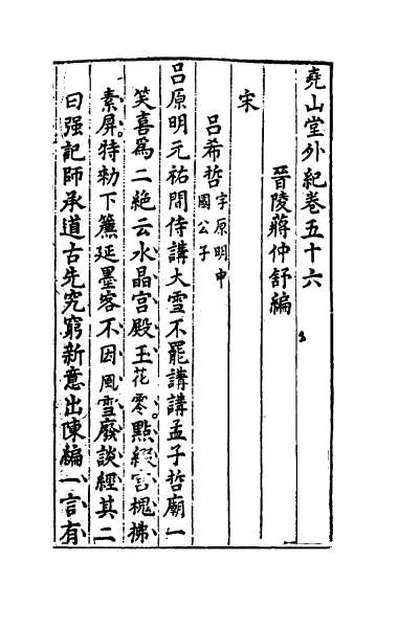 堯山堂外紀卷五十六
晉陵蔣仲舒編
宋
呂希哲字原明申國公子
呂原明元祐間侍講大雪不罷講講孟子哲廟一
笑喜爲二絶云水晶宫殿玉花零點綴宫槐拂
素屏特勑下簾延墨客不因風雪廢談經其二
曰强記師承道古先究窮新意出陳編一言有